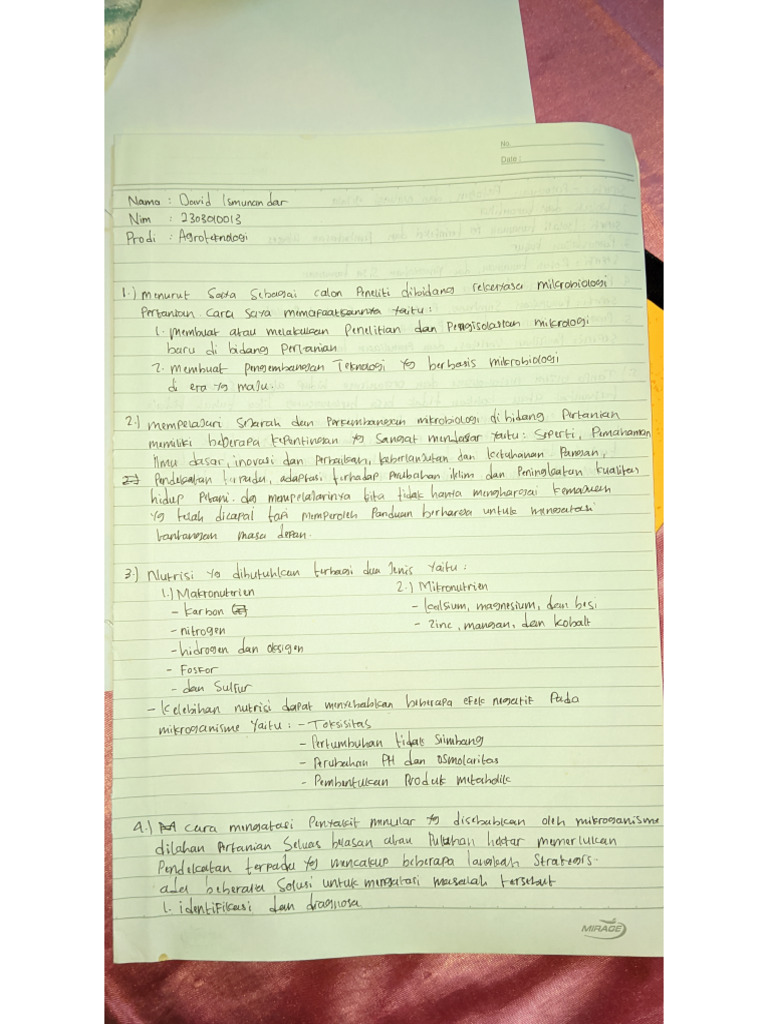 No.
Date :
Nama : David Ismunandar
Nim : 2303010013
Prodi : Agroteknologi
1.) menurut Saya Sebagai calon Peneliti dibidang rekayasa mikrobiologi
Pertanian. Cara Saya memanfaatkannya yaitu :
1. membuat atau melakukan Penelitian dan Pengisolasian mikrologi
baru di bidang Pertanian
2. membuat pengembangan Teknologi yg berbasis mikrobiologi
di era yg maju.
2.) mempelajari Sejarah dan Perkembangan mikrobiologi di bidang Pertanian
memiliki beberapa kepentingan yg Sangat mendasar yaitu : Seperti, Pemahaman
Ilmu dasar, inovasi dan Perbaikan, keberlanjutan dan ketahanan Pangan,
Pendekatan terpadu, adaptasi terhadap Perubahan iklim dan Peningkatan kualitas
hidup Petani. dg mempelajarinya kita tidak hanya menghargai kemajuan
yg telah dicapai tapi memperoleh Panduan berharga untuk mengatasi
tantangan masa depan.
3.) Nutrisi yg dibutuhkan terbagi dua Jenis yaitu :
1.) Makronutrien 2.) Mikronutrien
- karbon - kalsium, magnesium, dan besi
- nitrogen - Zinc, mangan, dan kobalt
- hidrogen dan oksigen
- Fosfor
- dan Sulfur
- Kelebihan nutrisi dapat menyebabkan beberapa efek negatif Pada
mikroganisme yaitu : - Toksisitas
- Pertumbuhan tidak Seimbang
- Perubahan PH dan osmolaritas
- Pembentukan Produk metabolik
4.) cara mengatasi Penyakit menular yg disebabkan oleh mikroganisme
dilahan Pertanian Seluas belasan atau Puluhan hektar memerlukan
Pendekatan terpadu yg mencakup beberapa langkah Strategis.
ada beberapa Solusi untuk mengatasi masalah tersebut
1. identifikasi dan diagnosa
MIRAGE